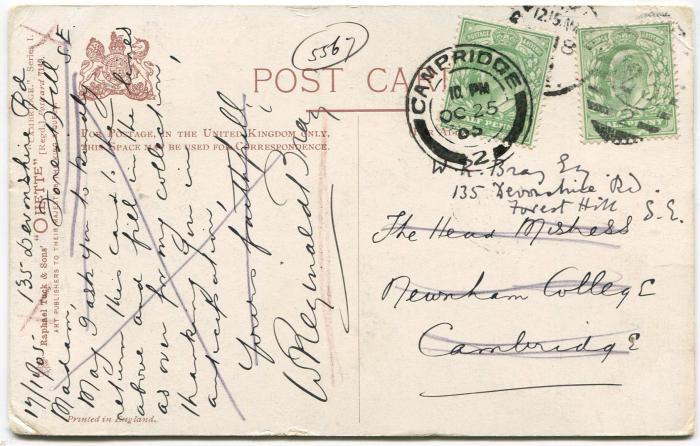 5567
POST CA
FOR POSTAGE, IN THE UNITED KINGDOM ONLY,
THIS SPACE MAY BE USED FOR CORRESPONDENCE.
CAMBRIDGE
10 PM
OC 25
05
2
12.15 AM
18
W. R. Bray Esq
135 Devonshire Rd.
Forest Hill S.E.
The Head Mistress
Newnham College
Cambridge
135 Devonshire Rd
Forest Hill S.E.
Madam,
May I ask you to kindly
return this card to my
above and fill in the lines
as over for my collection,
thanking you in
anticipation,
yours faithfully
W Reginald Bray
Raphael Tuck & Sons' "OILETTE" [Regd.] Postcard 7149.
CAMBRIDGE. Series 1.
ART PUBLISHERS TO THEIR MAJESTIES
Printed in England.